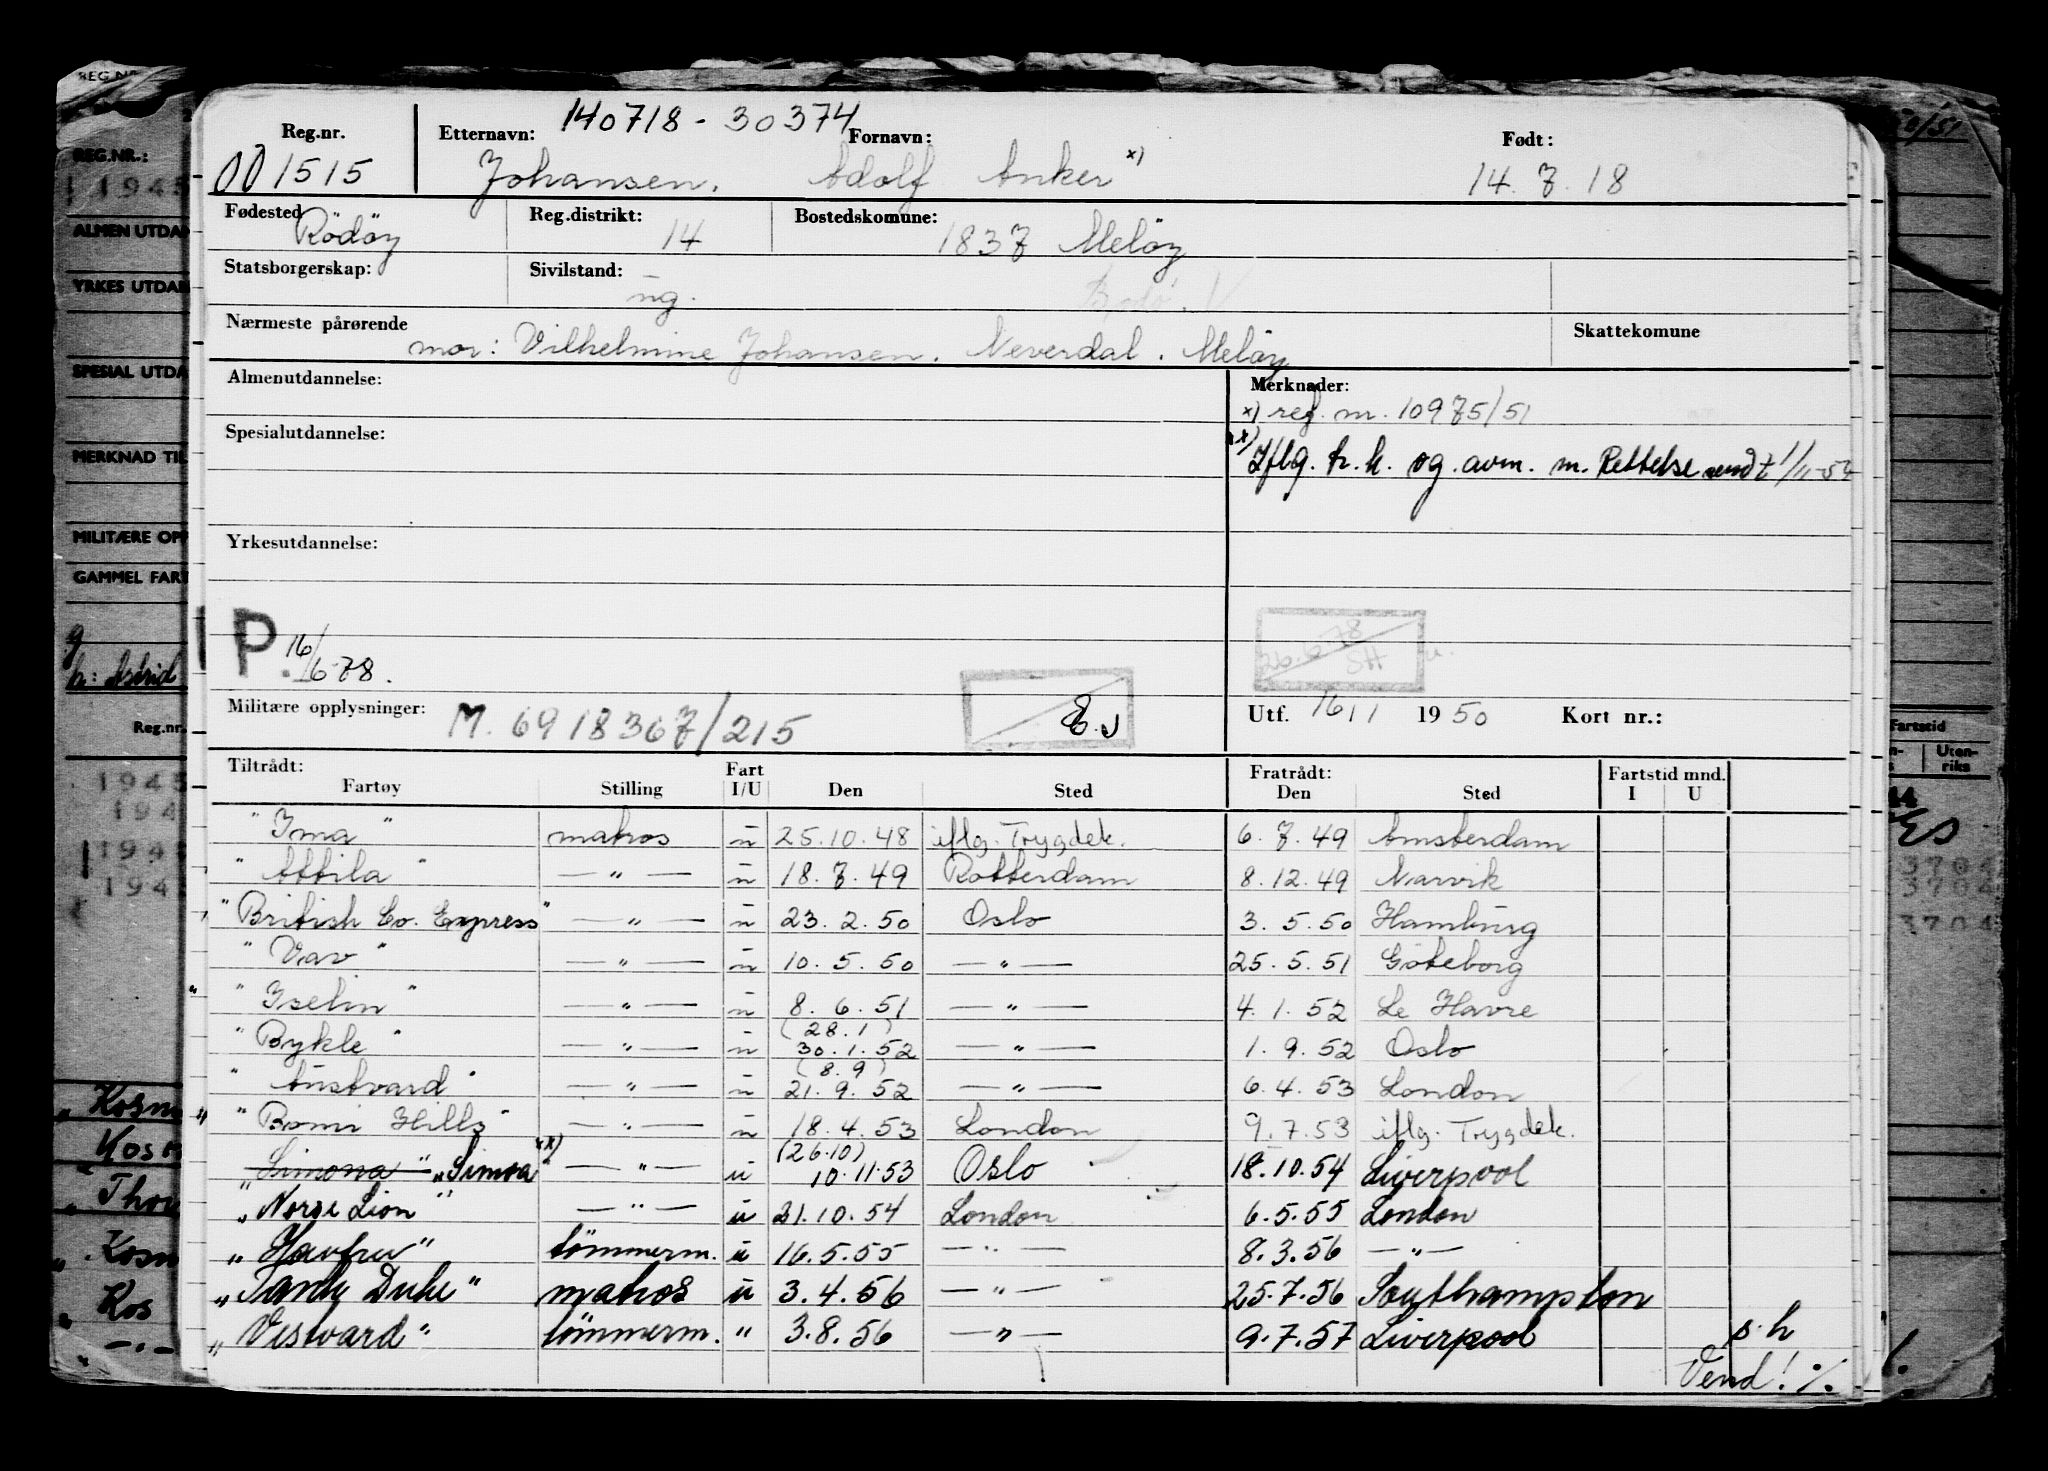 140718-30374
Reg.nr. Etternavn: Fornavn: Født:
001515 Johansen. Adolf Anker x) 14.7.18
Fødested Reg.distrikt: Bostedskomune:
Rödöy 14 1837 Melöy
Statsborgerskap: Sivilstand:
ug. Bodø. V
Nærmeste pårørende Skattekomune
mor: Vilhelmine Johansen. Neverdal. Melöy
Almenutdannelse: Merknader:
x) ref. m. 10975/51
Spesialutdannelse:
xx) Iflg. h.k. og avm. m. Rettelse sendt 1/11-54
Yrkesutdannelse:
P. 16/6-78.
26.6.78 SH
Militære opplysninger: M. 6918367/215 Utf. 16/1 1950 Kort nr.:
Tiltrådt: Fart Fratrådt: Fartstid mnd.
Fartøy Stilling I/U Den Sted Den Sted I U
"Ima" matros u 25.10.48 iflg. Trygdek. 6.7.49 Amsterdam
"Attila" — " — u 18.7.49 Rotterdam 8.12.49 Narvik
"British Co. Express" — " — u 23.2.50 Oslo 3.5.50 Hamburg
"Vav" — " — u 10.5.50 — " — 25.5.51 Göteborg
"Iselin" — " — u 8.6.51 — " — 4.1.52 Le Havre
(28.1)
"Bykle" — " — u 30.1.52 — " — 1.9.52 Oslo
(8.9)
"Austvard" — " — u 21.9.52 — " — 6.4.53 London
"Bomi Hills" — " — u 18.4.53 London 9.7.53 iflg. Trygdek.
(26.10)
"Simona" "Simoa" xx) — " — u 10.11.53 Oslo 18.10.54 Liverpool
"Norse Lion" — " — u 21.10.54 London 6.5.55 London
"Havfru" tömmerm. u 16.5.55 — " — 8.3.56 — " —
"Tank Duke" matros u 3.4.56 — " — 25.7.56 Southampton
"Vestvard" tömmerm. " 3.8.56 — " — 9.7.57 Liverpool s.h
Vend! %.
REG.NR.:
1945
ALMEN UTDAN
YRKES UTDAN
SPESIAL UTDA
MERKNAD TIL
MILITÆRE OPP
GAMMEL FART
h: Astrid
Reg.nr.
1945
194
1945
194
Kosm
Kosm
"Thor
"Kosm
Kos
Fartstid
Uten-
riks
44
3704
3704
3704